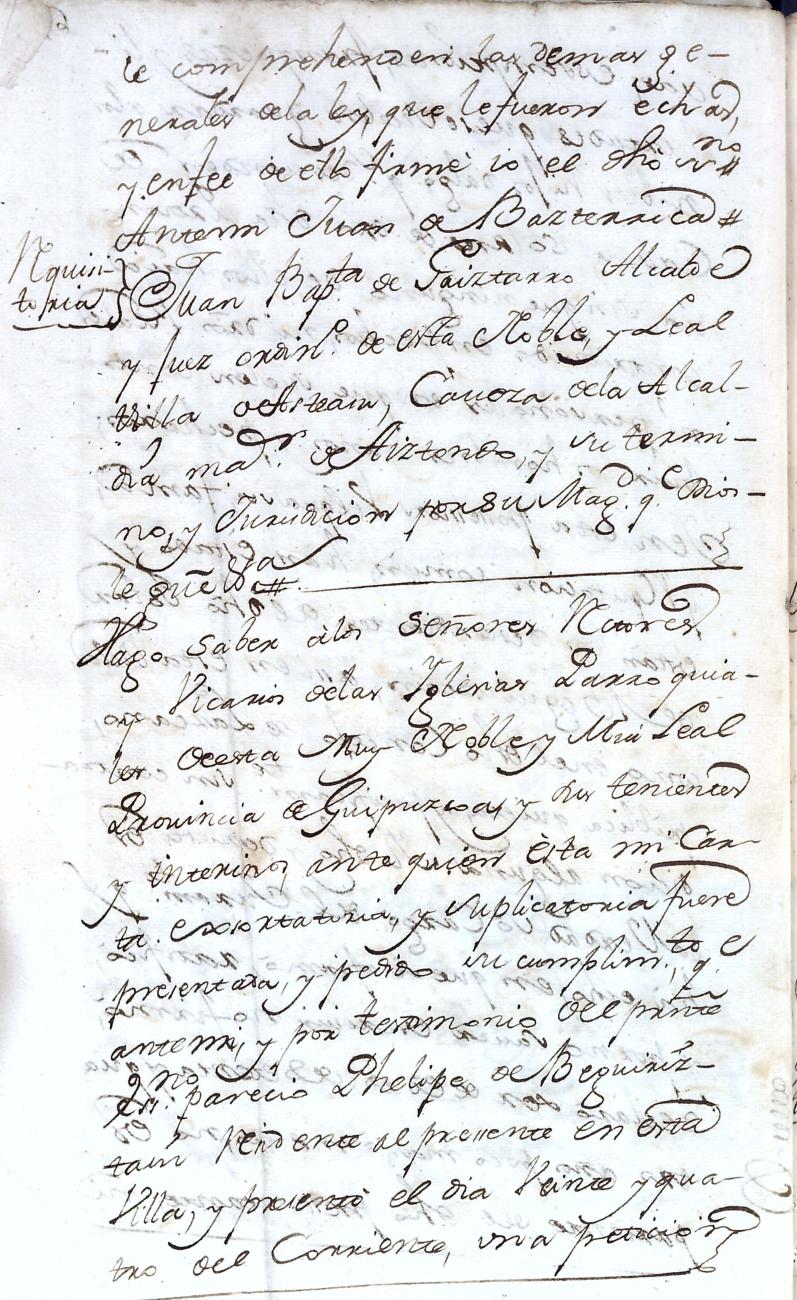 le comprehenden las demas ge-
nerales dela ley, que le fueron echas,
y enfee de ello firmè io el dho ss.no #
Antemi Juan de Bazterrica #
Rquisi-
toria
Juan Bap.ta de Alcalde
y Juez ordin.o de esta Noble, y Leal
Villa de Asteasu, Caveza dela Alcal-
dia maor. de Aiztondo, y su termi-
no, y Jurisdicion por su Mag.d q.e Dios-
le gũe &a #
Hago saber àlos señores Retores,
y Vicarios delas Yglesias Parroquia-
les de esta Muy Noble, y Mui Leal
Provincia de Guipuzcoa, y sus tenientes
y interinos, ante quien èsta mi Car-
ta exsortatoria, y suplicatoria fuere
presentada, y pedido su cumplim.to, q.e
antemi, y por testimonio del prñte
ss.no parecio Phelipe de Beguiriz-
tain residente al presente en esta
Villa, y presentò el dia Veinte y qua-
tro del Corriente, una peticion